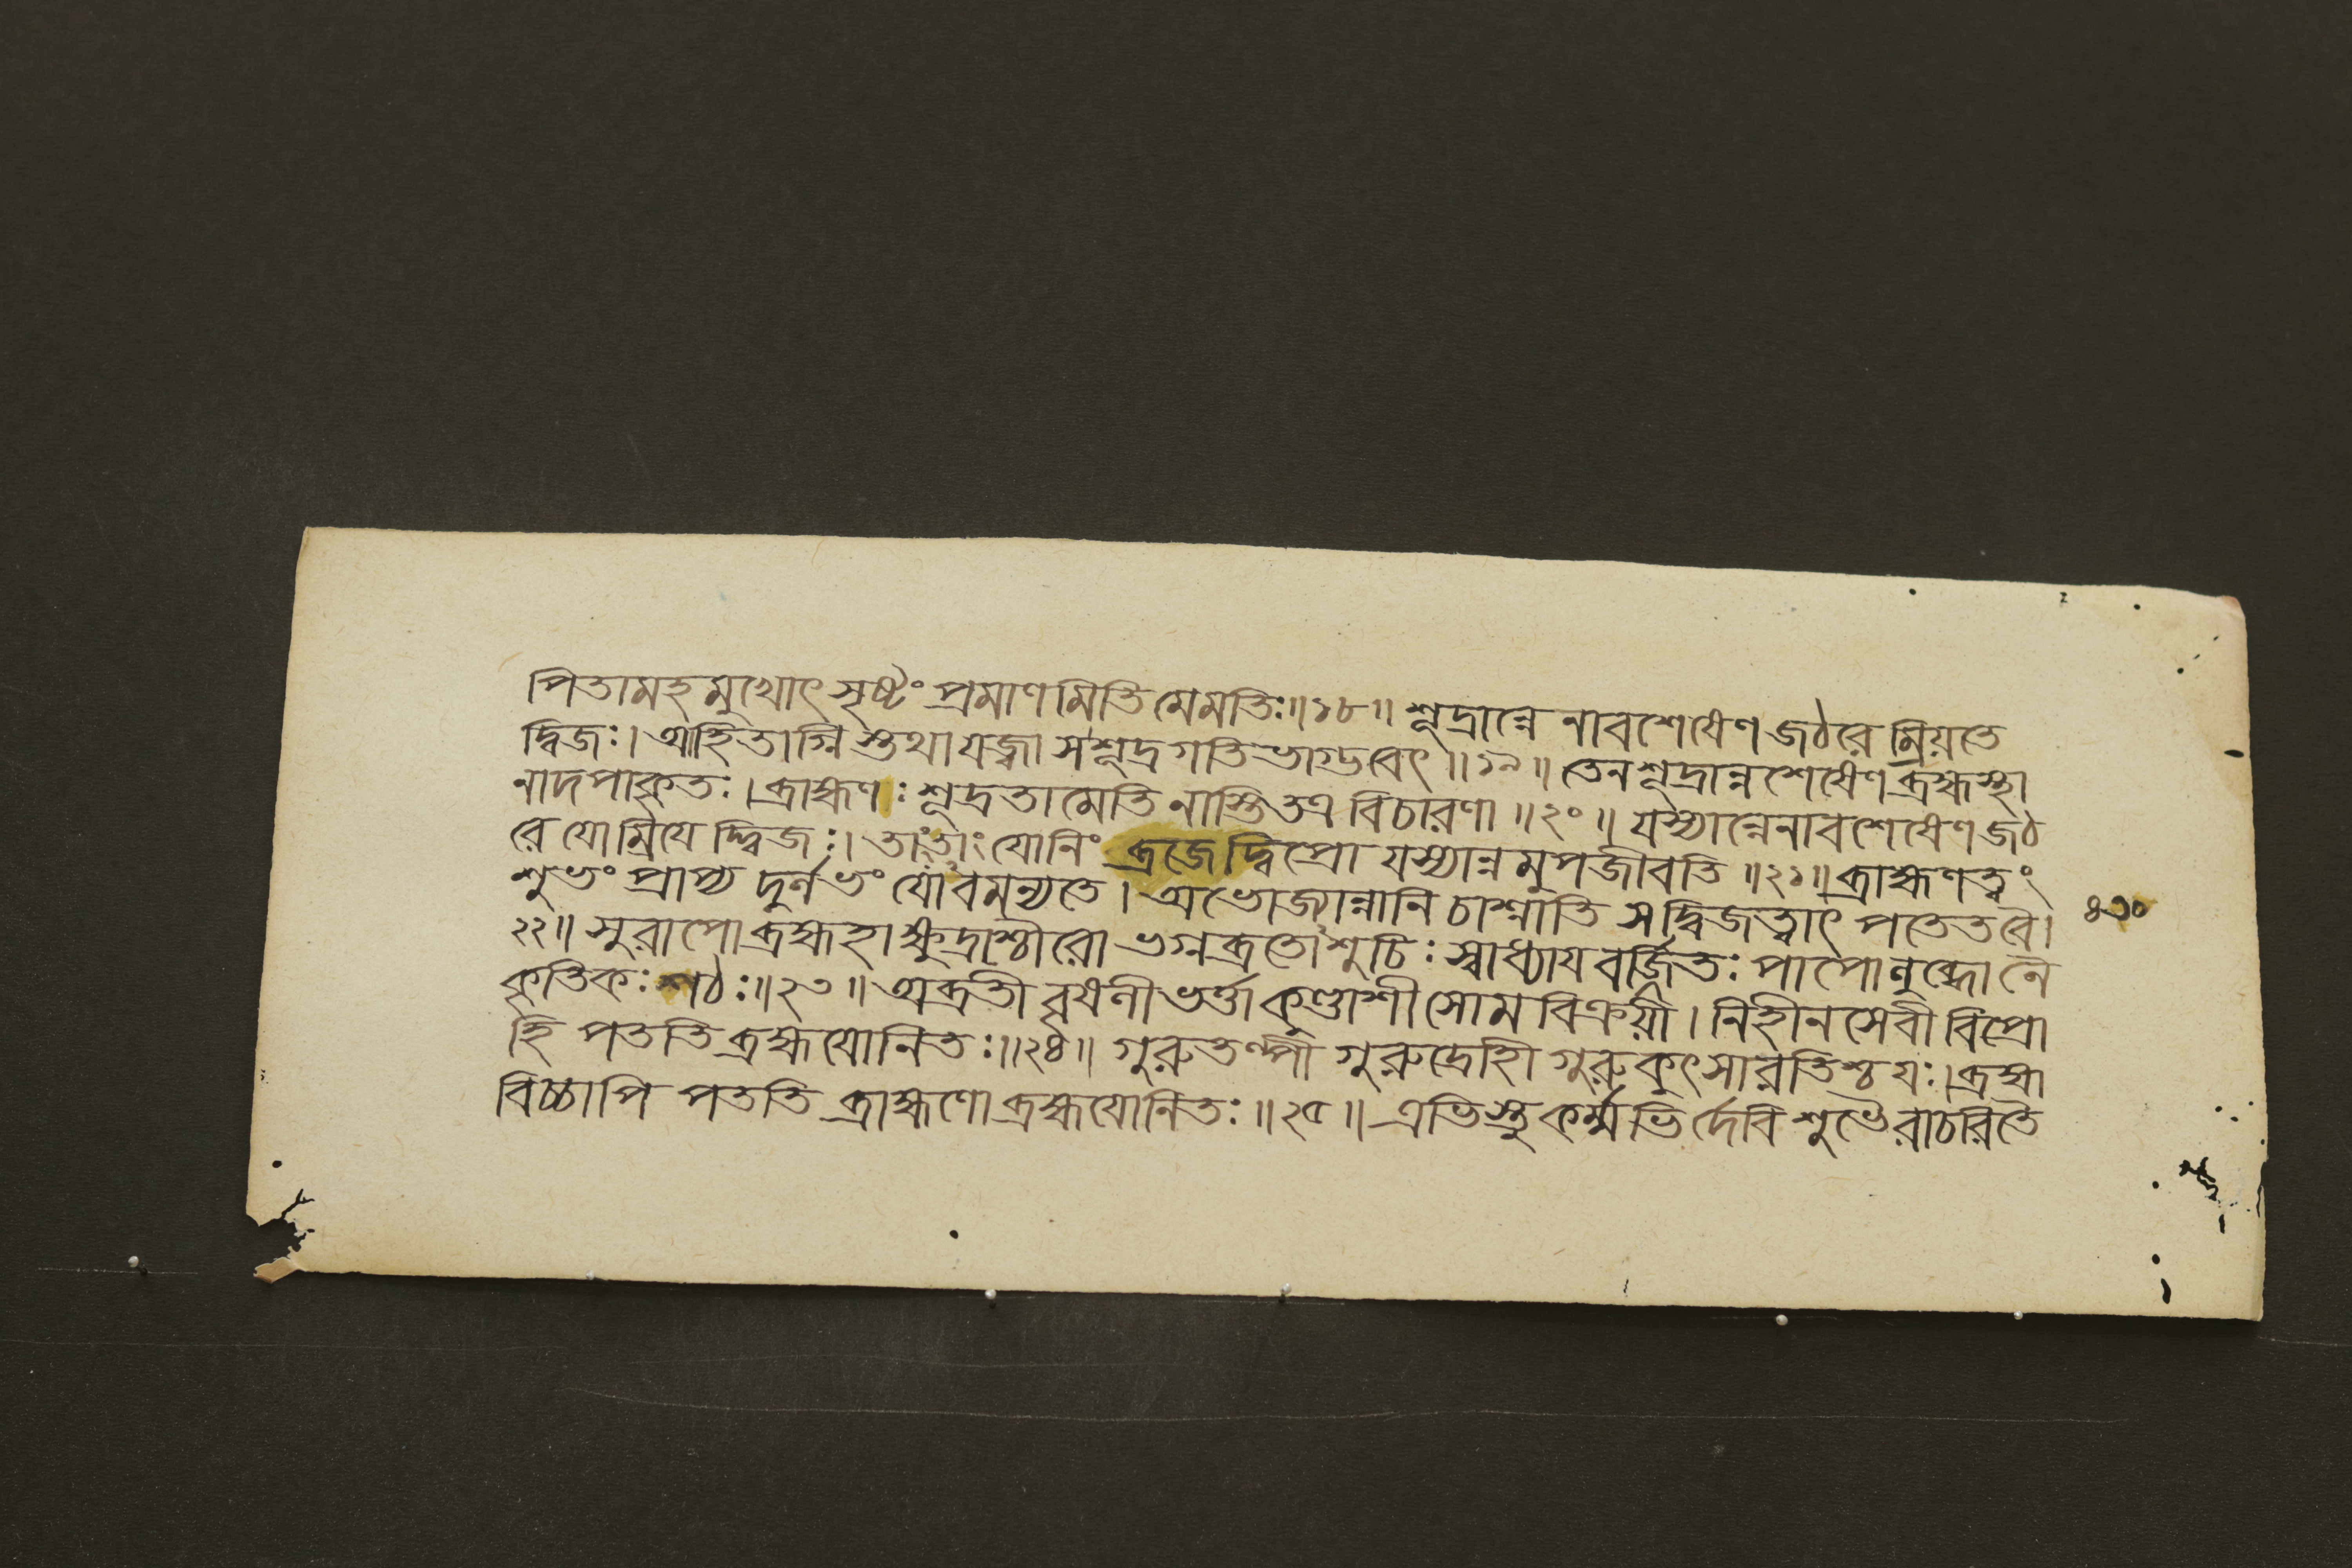 পিতামহমুখোৎসৃষ্টং প্রমাণমিতি মেমতিঃ॥১৮॥ শূদ্রান্নেনাবশেষেণ জঠরে ম্রিয়তে
দ্বিজঃ। আহিতাগ্নিস্তথা যজ্বা স শূদ্রগতিভাগ্ভবেৎ॥১৯॥ তেন শূদ্রান্নশেষেণ ব্রহ্মস্থা
নাদপাকৃতঃ। ব্রাহ্মণঃ শূদ্রতামেতি নাস্তি তত্র বিচারণা॥২০॥ যস্যান্নেনাবশেষেণ জঠ
রে যো ম্রিযেদ্দ্বিজঃ। তাং তাং যোনিং ব্রজেদ্বিপ্রো যস্যান্নমুপজীবতি॥২১॥ ব্রাহ্মণত্বং
শুভং প্রাপ্য দুর্লভং যোঽবমন্যতে। অভোজ্যান্নানি চাশ্নাতি স দ্বিজত্বাৎ পতেত বৈ।
৪৩০
২২॥ সুরাপো ব্রহ্মহা ক্ষুদ্রাশ্চৌরো ভগ্নব্রতোঽশুচিঃ স্বাধ্যায বর্জিতঃ পাপো লুব্ধো নৈ
কৃতিকঃ শঠঃ॥২৩॥ অব্রতী বৃষলীভর্ত্তা কুণ্ডাশী সোমবিক্রয়ী। নিহীনসেবী বিপ্রো
হি পততি ব্রহ্মযোনিতঃ॥২৪॥ গুরুতল্পী গুরুদ্রোহী গুরুকুৎসারতিশ্চ যঃ। ব্রহ্ম
বিচ্চাপি পততি ব্রাহ্মণো ব্রহ্মযোনিতঃ॥২৫॥ এভিস্তু কর্ম্মভির্দেবি শুভৈরাচরিতৈ